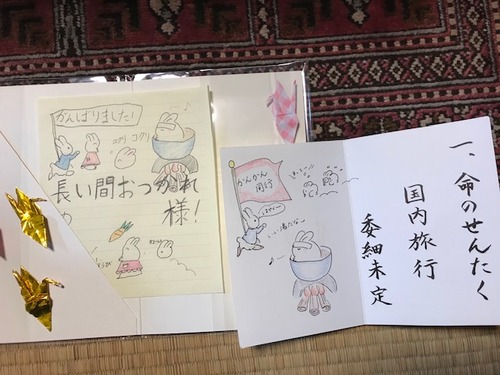 がんばりました!
コグリ コグリ
長い間おつかれ
様!
かんかん
同行
一、命のせんたく
国内旅行
委細未定